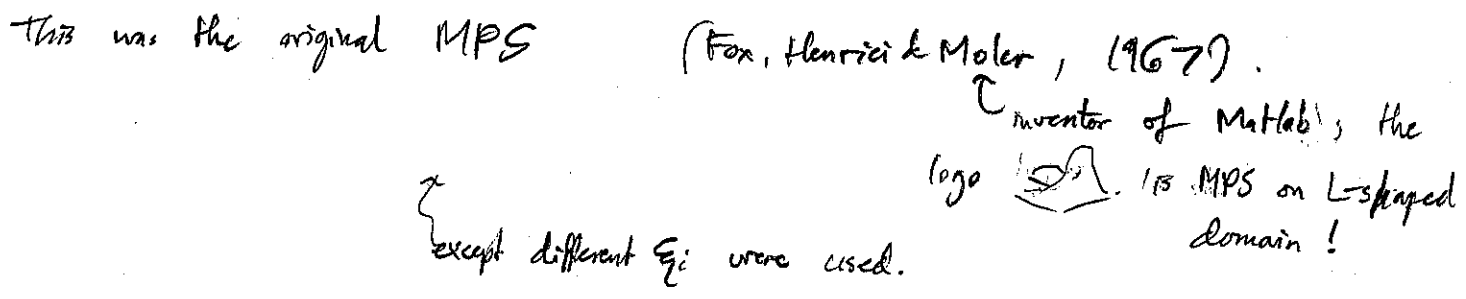 This was the original MPS (Fox, Henrici & Moler, 1967).
inventor of Matlab, the
logo is MPS on L-shaped
domain!
except different ξi were used.